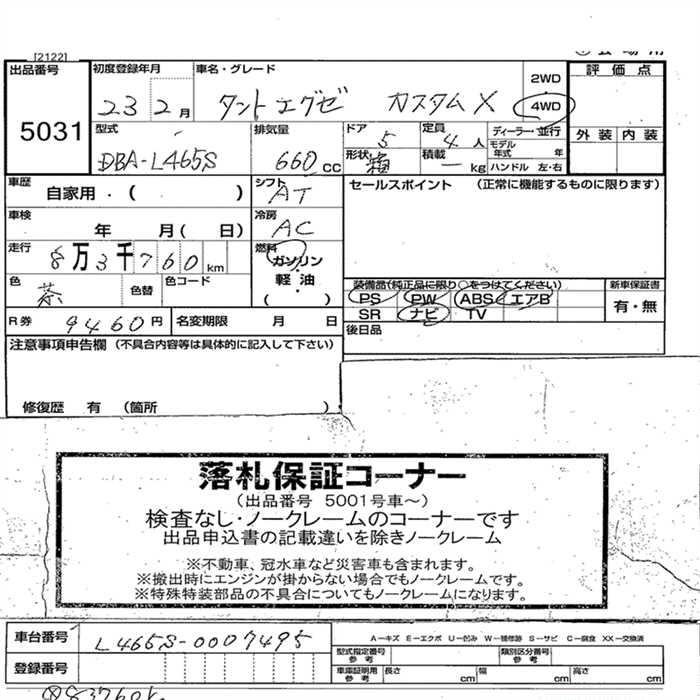 [2122]
出品番号 5031
初度登録年月 23 2月
車名・グレード タントエグゼ カスタムX
2WD
4WD
評価点
外装 内装
型式 DBA-L465S
排気量 660cc
ドア 5
定員 4人
ディーラー・並行
モデル年式 年
形状 箱
積載 ― kg
ハンドル 左・右
車歴 自家用・( )
シフト AT
セールスポイント (正常に機能するものに限ります)
車検 年 月( 日)
冷房 AC
走行 8万3千760km
燃料 ガソリン・軽油・( )
色 茶
色替
色コード
装備品(純正品に限り○をつけてください)
PS PW ABS エアB
SR ナビ TV
新車保証書
有・無
R券 9460円
名変期限 月 日
後日品
注意事項申告欄 (不具合内容等は具体的に記入して下さい)
修復歴 有 (箇所 )
落札保証コーナー
(出品番号 5001号車~)
検査なし・ノークレームのコーナーです
出品申込書の記載違いを除きノークレーム
※不動車、冠水車など災害車も含まれます。
※搬出時にエンジンが掛からない場合でもノークレームです。
※特殊特装部品の不具合についてもノークレームになります。
車台番号 L465S-0007495
A-キズ E-エクボ U-凹み W-補修跡 S-サビ C-腐食 XX-交換済
登録番号
型式指定番号 参考
類別区分番号 参考
車庫証明用 参考
長さ cm
幅 cm
高さ cm